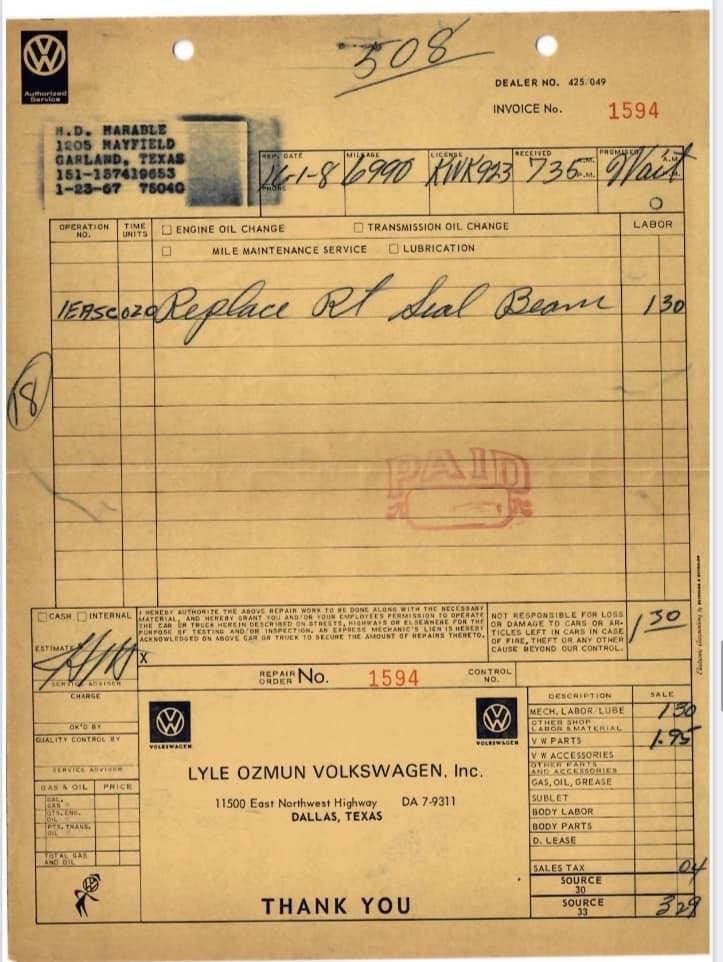 508
Authorized
Service
DEALER NO. 425/049
INVOICE No. 1594
H.D. MARABLE
1205 MAYFIELD
GARLAND, TEXAS
151-157419653
1-23-67 75040
DATE MILEAGE LICENSE RECEIVED A.M. P.M. PROMISED A.M.
6990 KWK923 735 Wait
PHONE
OPERATION NO. TIME UNITS ENGINE OIL CHANGE TRANSMISSION OIL CHANGE LABOR
MILE MAINTENANCE SERVICE LUBRICATION
1EASC 020 Replace Rt Seal Beam 1 30
18
PAID
CASH INTERNAL
I HEREBY AUTHORIZE THE ABOVE REPAIR WORK TO BE DONE ALONG WITH THE NECESSARY
MATERIAL, AND HEREBY GRANT YOU AND/OR YOUR EMPLOYEES PERMISSION TO OPERATE
THE CAR OR TRUCK HEREIN DESCRIBED ON STREETS, HIGHWAYS OR ELSEWHERE FOR THE
PURPOSE OF TESTING AND/OR INSPECTION. AN EXPRESS MECHANIC'S LIEN IS HEREBY
ACKNOWLEDGED ON ABOVE CAR OR TRUCK TO SECURE THE AMOUNT OF REPAIRS THERETO.
X
NOT RESPONSIBLE FOR LOSS
OR DAMAGE TO CARS OR AR-
TICLES LEFT IN CARS IN CASE
OF FIRE, THEFT OR ANY OTHER
CAUSE BEYOND OUR CONTROL.
1 30
ESTIMATE
SERVICE ADVISER
REPAIR ORDER No. 1594 CONTROL NO.
CHARGE
OK'D BY
QUALITY CONTROL BY
SERVICE ADVISOR
GAS & OIL PRICE
GAL. GAS
QTS. ENG. OIL
PTS. TRANS. OIL
TOTAL GAS AND OIL
VOLKSWAGEN
VOLKSWAGEN
LYLE OZMUN VOLKSWAGEN, Inc.
11500 East Northwest Highway DA 7-9311
DALLAS, TEXAS
THANK YOU
DESCRIPTION SALE
MECH. LABOR/LUBE 1 30
OTHER SHOP LABOR & MATERIAL
V W PARTS 1.95
V W ACCESSORIES
OTHER PARTS AND ACCESSORIES
GAS, OIL, GREASE
SUBLET
BODY LABOR
BODY PARTS
D. LEASE
SALES TAX 04
SOURCE 30
SOURCE 33 3 29